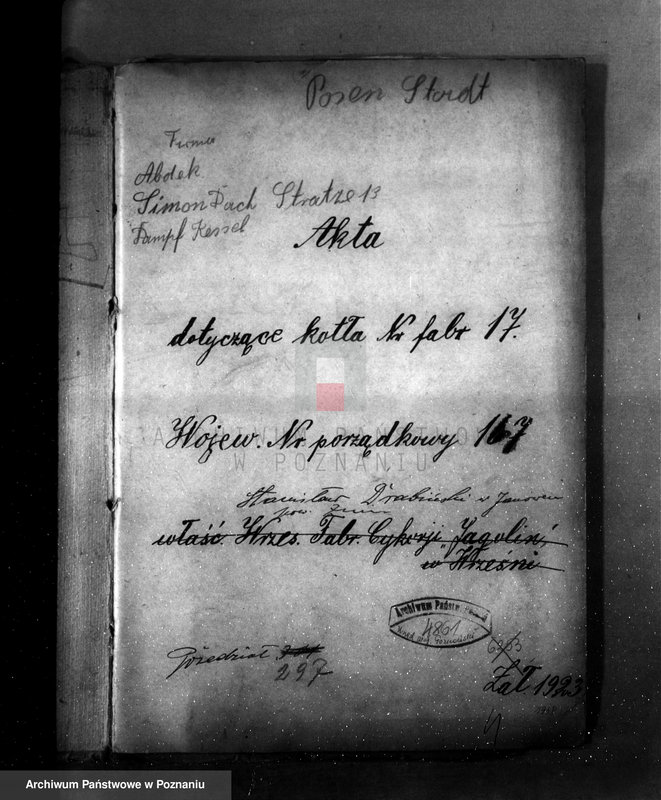 Posen Stadt
Firma
Abdek
Simon Dach Stratze 13
Dampf Kessel
Akta
dotyczące kotła Nr fabr 17.
ARCHIWUM PAŃSTWOWE
W POZNANIU
Wojew. Nr porządkowy 167
Stanisław Drabiński w Janowcu
pow. Żnin
właść Wrzes. Fabr. Cykorji „Jagolin”
w Wrześni
Archiwum Państw.
4861
297
Zał 1923
Archiwum Państwowe w Poznaniu